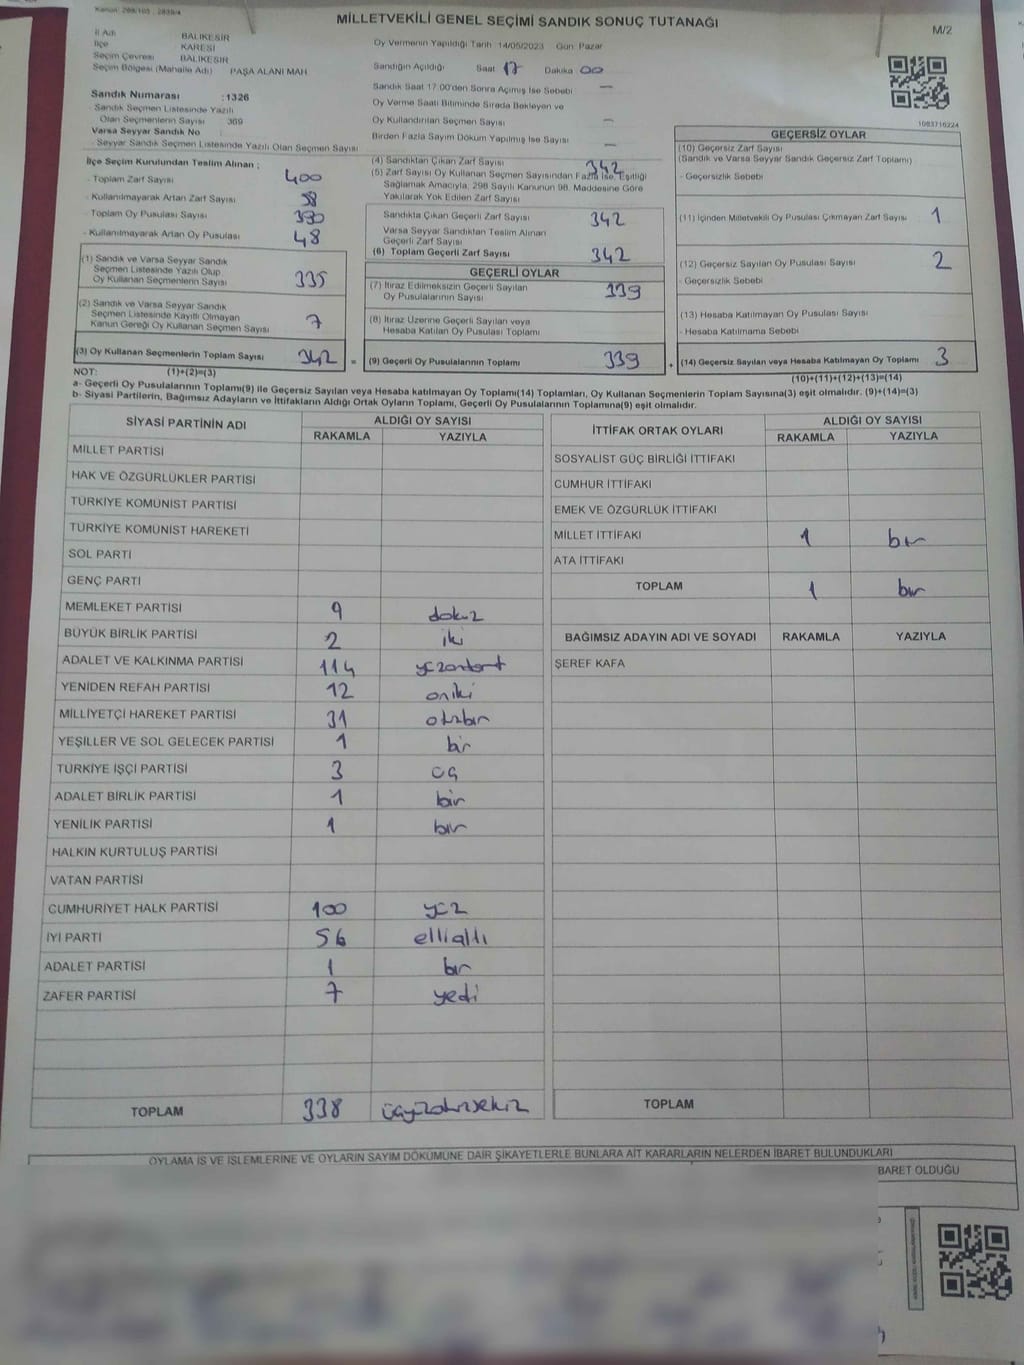 Kanun: 298/105 ; 2839/4
MİLLETVEKİLİ GENEL SEÇİMİ SANDIK SONUÇ TUTANAĞI
M/2
İl Adı BALIKESİR
İlçe KARESİ
Seçim Çevresi BALIKESİR
Seçim Bölgesi (Mahalle Adı) PAŞA ALANI MAH
Sandık Numarası : 1326
- Sandık Seçmen Listesinde Yazılı
Olan Seçmenlerin Sayısı 369
Varsa Seyyar Sandık No :
- Seyyar Sandık Seçmen Listesinde Yazılı Olan Seçmen Sayısı
Oy Vermenin Yapıldığı Tarih 14/05/2023 Gün: Pazar
Sandığın Açıldığı Saat 17 Dakika 00
Sandık Saat 17:00'den Sonra Açılmış İse Sebebi —
Oy Verme Saati Bitiminde Sırada Bekleyen ve
Oy Kullandırılan Seçmen Sayısı —
Birden Fazla Sayım Döküm Yapılmış İse Sayısı —
1083716224
İlçe Seçim Kurulundan Teslim Alınan ;
- Toplam Zarf Sayısı 400
- Kullanılmayarak Artan Zarf Sayısı 58
- Toplam Oy Pusulası Sayısı 390
- Kullanılmayarak Artan Oy Pusulası 48
(1) Sandık ve Varsa Seyyar Sandık
Seçmen Listesinde Yazılı Olup
Oy Kullanan Seçmenlerin Sayısı 335
(2) Sandık ve Varsa Seyyar Sandık
Seçmen Listesinde Kayıtlı Olmayan
Kanun Gereği Oy Kullanan Seçmen Sayısı 7
(3) Oy Kullanan Seçmenlerin Toplam Sayısı 342 =
(4) Sandıktan Çıkan Zarf Sayısı 342
(5) Zarf Sayısı Oy Kullanan Seçmen Sayısından Fazla İse, Eşitliği
Sağlamak Amacıyla, 298 Sayılı Kanunun 98. Maddesine Göre
Yakılarak Yok Edilen Zarf Sayısı
Sandıkta Çıkan Geçerli Zarf Sayısı 342
Varsa Seyyar Sandıktan Teslim Alınan
Geçerli Zarf Sayısı
(6) Toplam Geçerli Zarf Sayısı 342
GEÇERLİ OYLAR
(7) İtiraz Edilmeksizin Geçerli Sayılan
Oy Pusulalarının Sayısı 339
(8) İtiraz Üzerine Geçerli Sayılan veya
Hesaba Katılan Oy Pusulası Toplamı
(9) Geçerli Oy Pusulalarının Toplamı 339 +
GEÇERSİZ OYLAR
(10) Geçersiz Zarf Sayısı
(Sandık ve Varsa Seyyar Sandık Geçersiz Zarf Toplamı)
- Geçersizlik Sebebi
(11) İçinden Milletvekili Oy Pusulası Çıkmayan Zarf Sayısı 1
(12) Geçersiz Sayılan Oy Pusulası Sayısı 2
- Geçersizlik Sebebi
(13) Hesaba Katılmayan Oy Pusulası Sayısı
- Hesaba Katılmama Sebebi
(14) Geçersiz Sayılan veya Hesaba Katılmayan Oy Toplamı 3
NOT: (1)+(2)=(3)
(10)+(11)+(12)+(13)=(14)
a- Geçerli Oy Pusulalarının Toplamı(9) ile Geçersiz Sayılan veya Hesaba katılmayan Oy Toplamı(14) Toplamları, Oy Kullanan Seçmenlerin Toplam Sayısına(3) eşit olmalıdır. (9)+(14)=(3)
b- Siyasi Partilerin, Bağımsız Adayların ve İttifakların Aldığı Ortak Oyların Toplamı, Geçerli Oy Pusulalarının Toplamına(9) eşit olmalıdır.
SİYASİ PARTİNİN ADI ALDIĞI OY SAYISI
RAKAMLA YAZIYLA
MİLLET PARTİSİ
HAK VE ÖZGÜRLÜKLER PARTİSİ
TÜRKİYE KOMÜNİST PARTİSİ
TÜRKİYE KOMÜNİST HAREKETİ
SOL PARTİ
GENÇ PARTİ
MEMLEKET PARTİSİ 9 dokuz
BÜYÜK BİRLİK PARTİSİ 2 iki
ADALET VE KALKINMA PARTİSİ 114 yüzondört
YENİDEN REFAH PARTİSİ 12 oniki
MİLLİYETÇİ HAREKET PARTİSİ 31 otuzbir
YEŞİLLER VE SOL GELECEK PARTİSİ 1 bir
TÜRKİYE İŞÇİ PARTİSİ 3 üç
ADALET BİRLİK PARTİSİ 1 bir
YENİLİK PARTİSİ 1 bir
HALKIN KURTULUŞ PARTİSİ
VATAN PARTİSİ
CUMHURİYET HALK PARTİSİ 100 yüz
İYİ PARTİ 56 ellialtı
ADALET PARTİSİ 1 bir
ZAFER PARTİSİ 7 yedi
TOPLAM 338 üçyüzotuzsekiz
İTTİFAK ORTAK OYLARI ALDIĞI OY SAYISI
RAKAMLA YAZIYLA
SOSYALİST GÜÇ BİRLİĞİ İTTİFAKI
CUMHUR İTTİFAKI
EMEK VE ÖZGÜRLÜK İTTİFAKI
MİLLET İTTİFAKI 1 bir
ATA İTTİFAKI
TOPLAM 1 bir
BAĞIMSIZ ADAYIN ADI VE SOYADI RAKAMLA YAZIYLA
ŞEREF KAFA
TOPLAM
OYLAMA İŞ VE İŞLEMLERİNE VE OYLARIN SAYIM DÖKÜMÜNE DAİR ŞİKAYETLERLE BUNLARA AİT KARARLARIN NELERDEN İBARET BULUNDUKLARI
BARET OLDUĞU